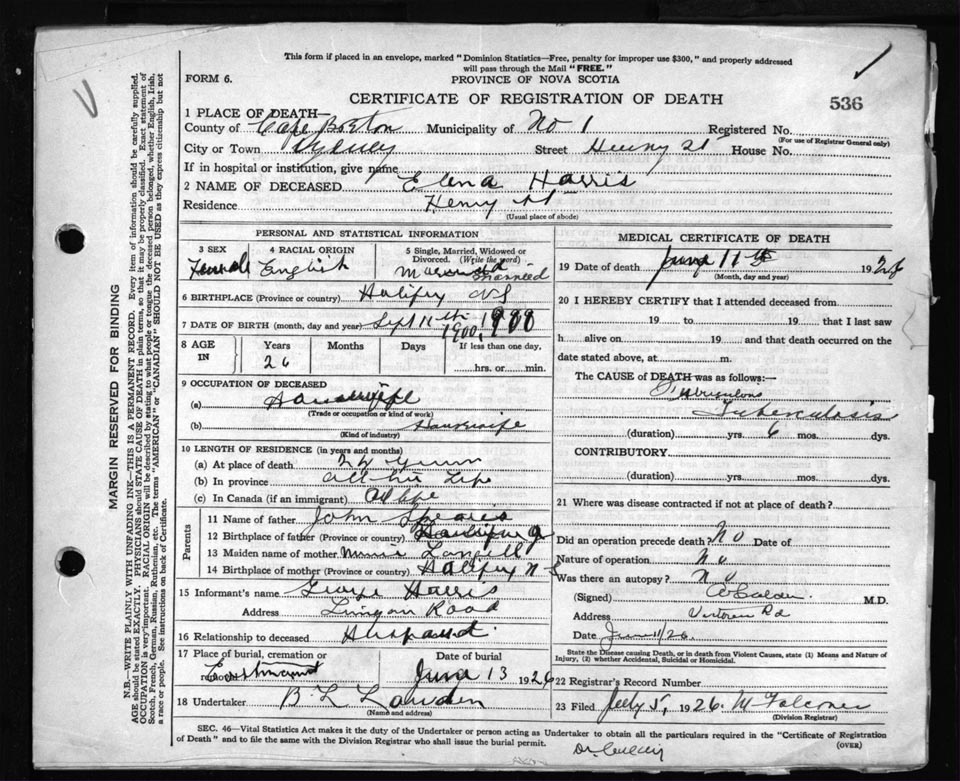 This form if placed in an envelope, marked "Dominion Statistics—Free, penalty for improper use $300," and properly addressed
will pass through the Mail "FREE."
FORM 6.
PROVINCE OF NOVA SCOTIA
CERTIFICATE OF REGISTRATION OF DEATH
536
1 PLACE OF DEATH—
County of Cape Breton Municipality of No 1 Registered No.
(For use of Registrar General only)
City or Town Sydney Street Henry St House No.
If in hospital or institution, give name
2 NAME OF DECEASED Elena Harris
Residence Henry St
(Usual place of abode)
MARGIN RESERVED FOR BINDING
N.B.—WRITE PLAINLY WITH UNFADING INK—THIS IS A PERMANENT RECORD. Every item of information should be carefully supplied.
AGE should be stated EXACTLY. PHYSICIANS should STATE CAUSE OF DEATH in plain terms, so that it may be properly classified. Exact statement of
OCCUPATION is very important. RACIAL ORIGIN will be described by stating to what people or tongue the deceased person belonged, whether English, Irish,
Scotch, French, German, Russian, Ruthenian, etc. The terms "AMERICAN" or "CANADIAN" SHOULD NOT BE USED as they express citizenship but not
a race or people. See instructions on back of Certificate.
PERSONAL AND STATISTICAL INFORMATION
3 SEX
Female
4 RACIAL ORIGIN
English
5 Single, Married, Widowed or
Divorced. (Write the word)
Married
6 BIRTHPLACE (Province or country) Halifax NS
7 DATE OF BIRTH (month, day and year) Sept 11th 1900
8 AGE
IN
Years
26
Months
Days
If less than one day,
hrs. or min.
9 OCCUPATION OF DECEASED
(a) Housewife
(Trade or occupation or kind of work)
(b) Housewife
(Kind of industry)
10 LENGTH OF RESIDENCE (in years and months)
(a) At place of death
(b) In province All her Life
(c) In Canada (if an immigrant) All Life
Parents
11 Name of father John
12 Birthplace of father (Province or country)
13 Maiden name of mother
14 Birthplace of mother (Province or country) Halifax N S
15 Informant's name George Harris
Address Lingan Road
16 Relationship to deceased Husband
17 Place of burial, cremation or
removal
Date of burial
June 13 1926
18 Undertaker B L
(Name and address)
MEDICAL CERTIFICATE OF DEATH
19 Date of death June 11th 192
(Month, day and year)
20 I HEREBY CERTIFY that I attended deceased from
19 to 19 that I last saw
h alive on 19 and that death occurred on the
date stated above, at m.
The CAUSE of DEATH was as follows:—
Tuberculosis
(duration) yrs. 6 mos. dys.
CONTRIBUTORY
(duration) yrs. mos. dys.
21 Where was disease contracted if not at place of death?
Did an operation precede death? No Date of
Nature of operation No
Was there an autopsy? No
(Signed) M.D.
Address Victoria Rd
Date June 11/26.
State the Disease causing Death, or in death from Violent Causes, state (1) Means and Nature of
Injury, (2) whether Accidental, Suicidal or Homicidal.
22 Registrar's Record Number
23 Filed July 5, 1926. M Falconer
(Division Registrar)
SEC. 46—Vital Statistics Act makes it the duty of the Undertaker or person acting as Undertaker to obtain all the particulars required in the "Certificate of Registration
of Death" and to file the same with the Division Registrar who shall issue the burial permit.
(OVER)